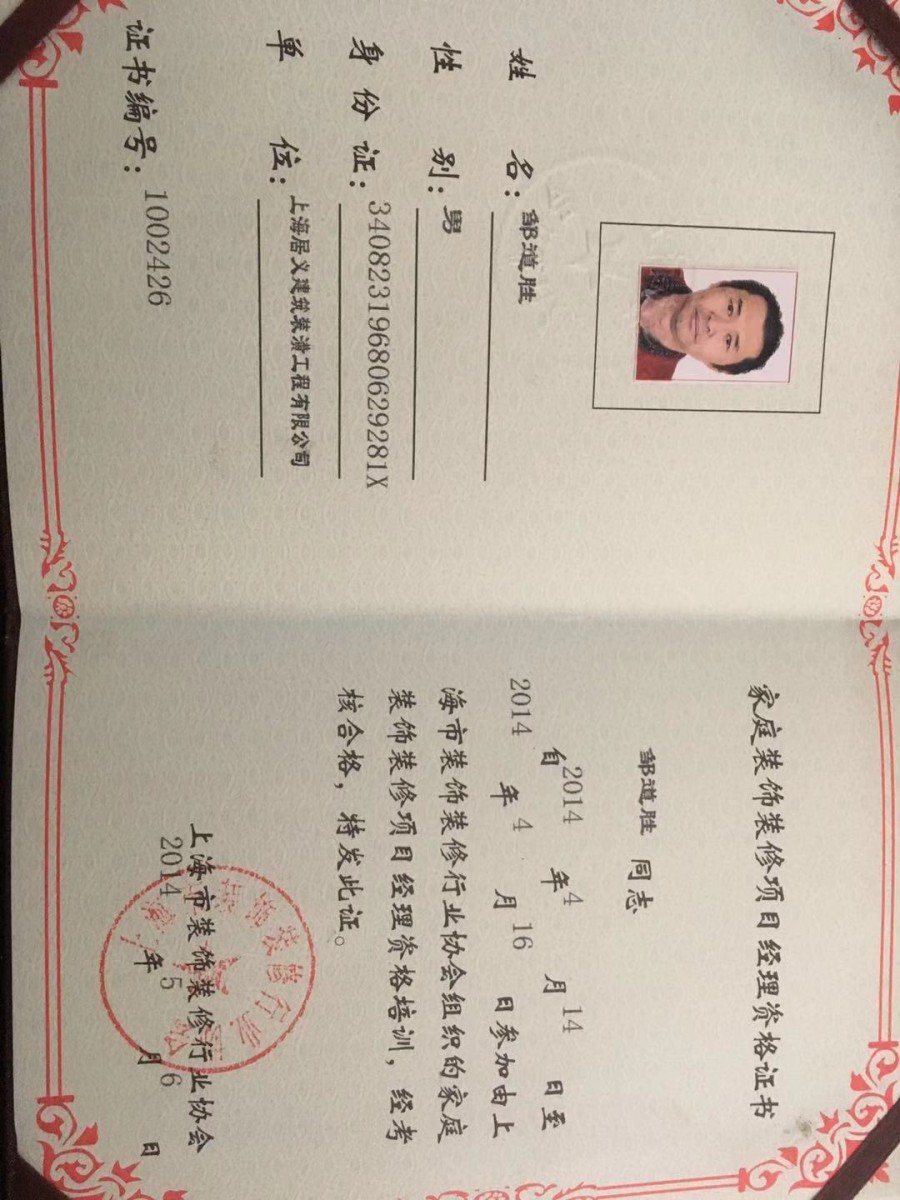 姓 名：邹道胜
性 别：男
身 份 证：34082319680629281X
单 位：上海居义建筑装潢工程有限公司
证书编号：1002426
家庭装饰装修项目经理资格证书
邹道胜 同志
自2014 年4 月14 日至
2014 年4 月16 日参加由上
海市装饰装修行业协会组织的家庭
装饰装修项目经理资格培训，经考
核合格，特发此证。
上海市装饰装修行业协会
2014 年5 月6 日